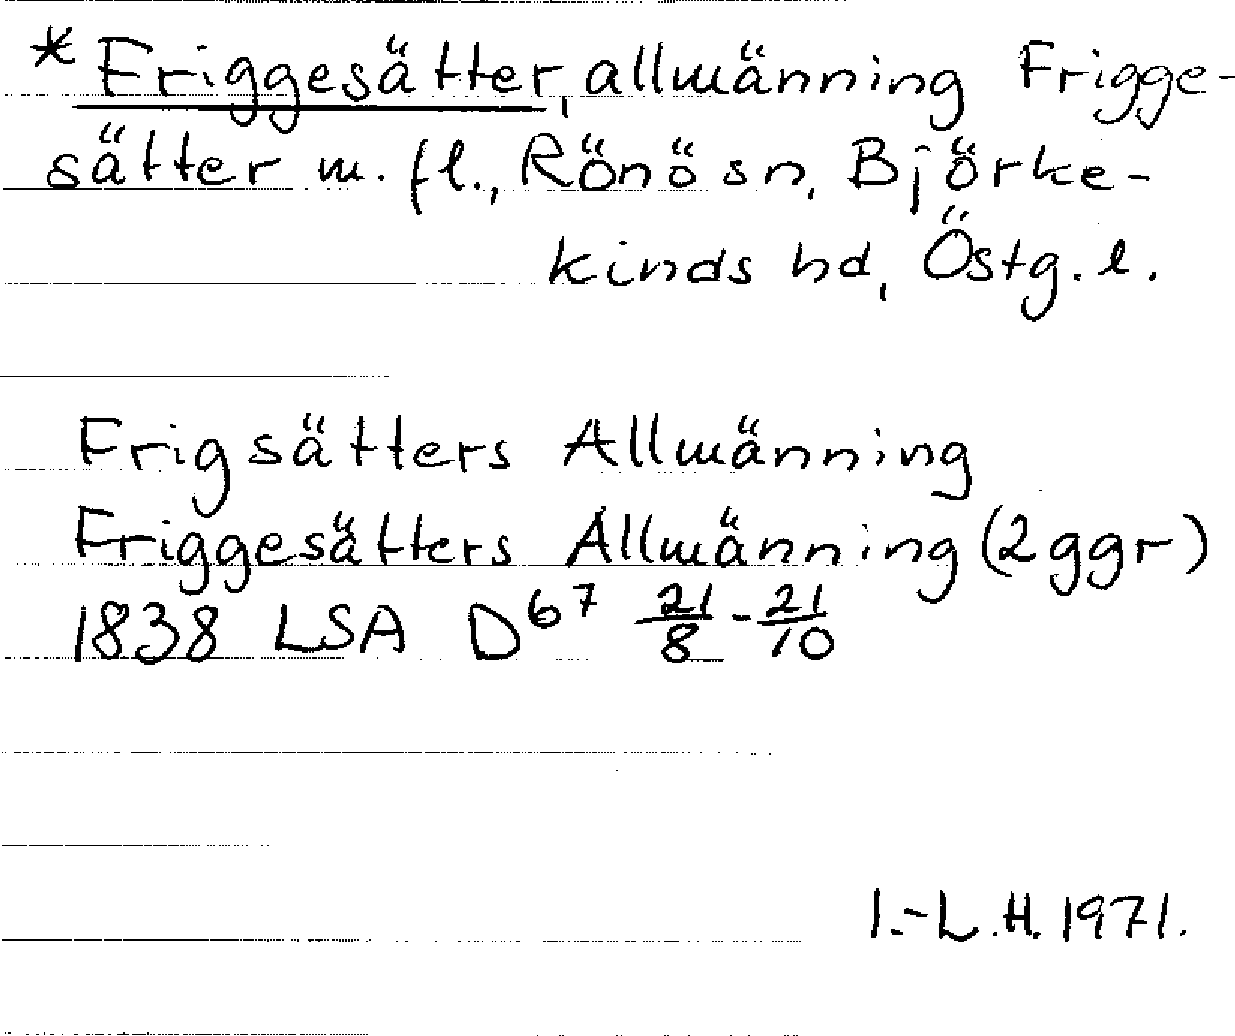 * Friggesätter, allmänning Frigge-
sätter m. fl., Rönö sn, Björke-
kinds hd, Östg. l.
Frigsätters Allmänning
Friggesätters Allmänning (2 ggr)
1838 LSA D⁶⁷ 21/8 - 21/10
I.-L.H. 1971.